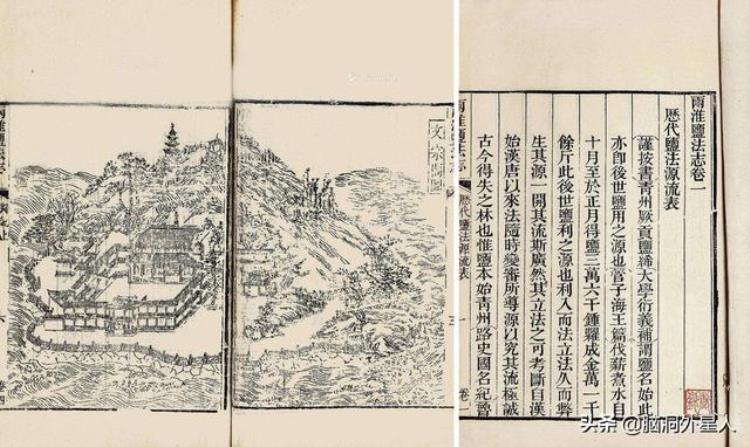 兩淮鹽法志卷一
歴代鹽法源流表
謹按書青州厥貢鹽絺大學衍義補謂鹽名始此
亦卽後世鹽用之源也管子海王篇伐薪煮水自
十月至於正月得鹽三萬六千鍾糶成金萬一千
餘斤此後世鹽利之源也利入而法立法久而弊
生其源一開其流斯廣然其立法之可考斷自漢
始漢唐以來法隨時變審所導源以究其流極誠
古今得失之林也惟鹽本始青州路史國名紀魯
兩淮鹽法志
歴代鹽法源流表
一
卷一
文宗閣圖
三
兩淮鹽法志
六
卷四
头条 @脑洞外星人